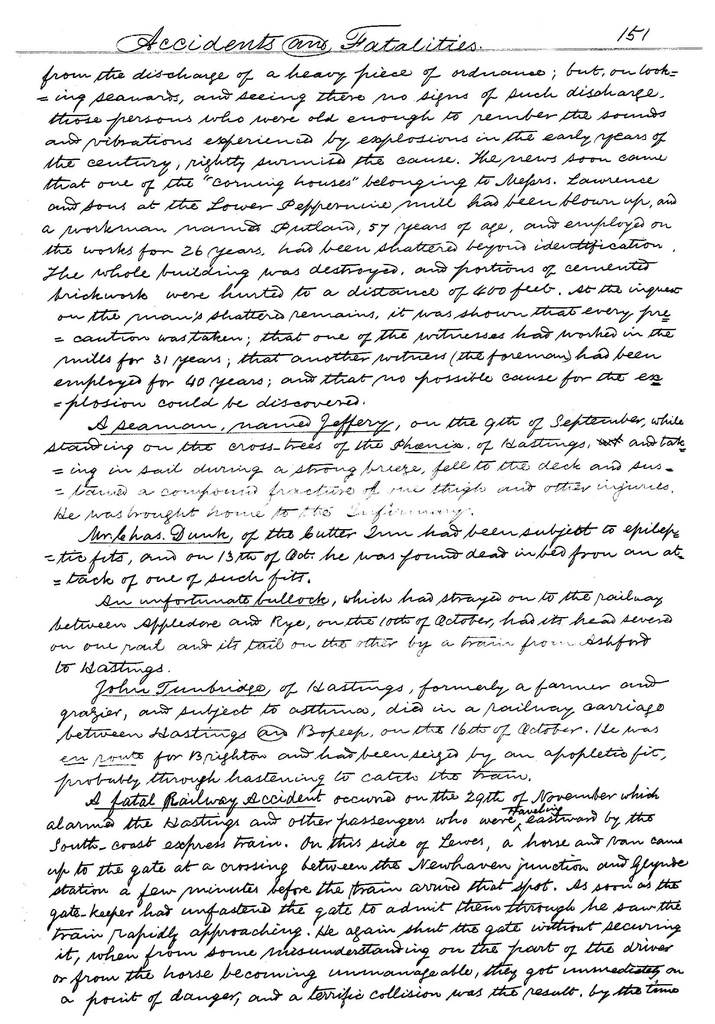 Accidents and Fatalities. 151
from the discharge of a heavy piece of ordnance; but, on look=
=ing seawards, and seeing there no signs of such discharge,
those persons who were old enough to rember the sounds
and vibrations experienced by explosions in the early years of
the century, rightly surmised the cause. The news soon came
that one of the "corning houses" belonging to Messrs. Lawrence
and Sons at the Lower Peppermine mill had been blown up, and
a workman named Putland, 57 years of age, and employed on
the works for 26 years, had been shattered beyond identification.
The whole building was destroyed, and portions of cemented
brickwork were hurled to a distance of 400 feet. At the inquest
on the man's shattered remains, it was shown that every pre=
=caution was taken; that one of the witnesses had worked in the
mills for 31 years; that another witness (the foreman) had been
employed for 40 years; and that no possible cause for the ex=
=plosion could be discovered.
A seaman, named Jeffery, on the 9th of September, while
standing on the cross-trees of the Phœnix, of Hastings, and tak=
=ing in sail durring a strong breeze, fell to the deck and sus=
=tained a compound fracture of one thigh and other injuries.
He was brought home to the Infirmary.
Mr. Chas. Dunk, of the Cutter Inn had been subject to epilep=
=tic fits, and on 13th of Oct. he was found dead in bed from an at=
=tack of one of such fits.
An unfortunate bullock, which had strayed on to the railway
between Appledore and Rye, on the 10th of October, had its head severed
on one rail and its tail on the other by a train from Ashford
to Hastings.
John Tunbridge, of Hastings, formerly a farmer and
grazier, and subject to asthma, died in a railway carriage
between Hastings and Bopeep, on the 16th of October. He was
en route for Brighton and had been seized by an apopletic fit,
probably through hastening to catch the train.
A fatal Railway Accident occured on the 29th of November which
alarmed the Hastings and other passengers who were traveling eastward by the
South-coast express train. On this side of Lewes, a horse and van came
up to the gate at a crossing between the Newhaven junction and Glynde
station a few minutes before the train arrived that spot. As soon as the
gate-keeper had unfastened the gate to admit them through he saw the
train rapidly approaching. He again shut the gate without securing
it, when from some misunderstanding on the part of the driver
or from the horse becoming unmanageable, they got immediately on
a point of danger, and a terrific collision was the result. by the time